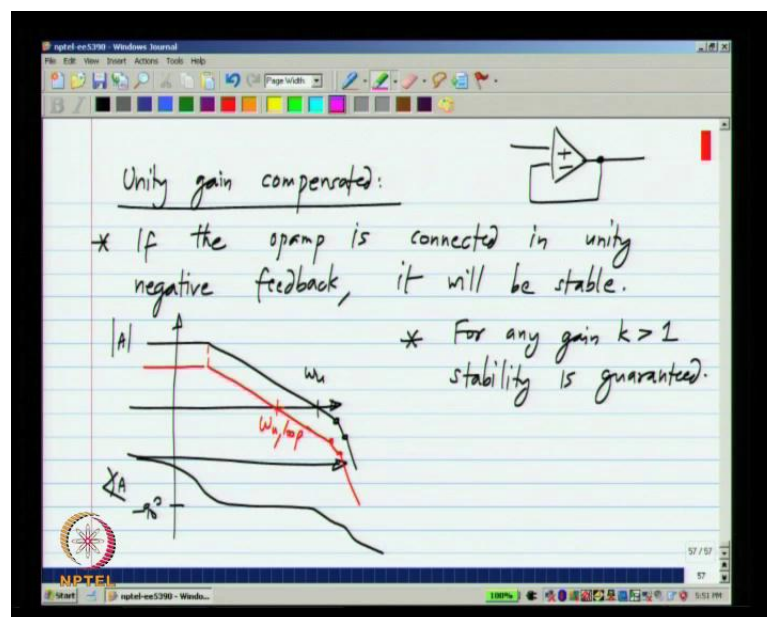 nptel-ee5390 - Windows Journal
File Edit View Insert Actions Tools Help
Page Width
B I
Unity gain compensated:
+
−
* If the opamp is connected in unity
negative feedback, it will be stable.
* For any gain k > 1
stability is guaranteed.
|A|
ωu
ωu,loop
∠A
-90°
NPTEL
57 / 57
57
Start
nptel-ee5390 - Windo...
100%
5:51 PM